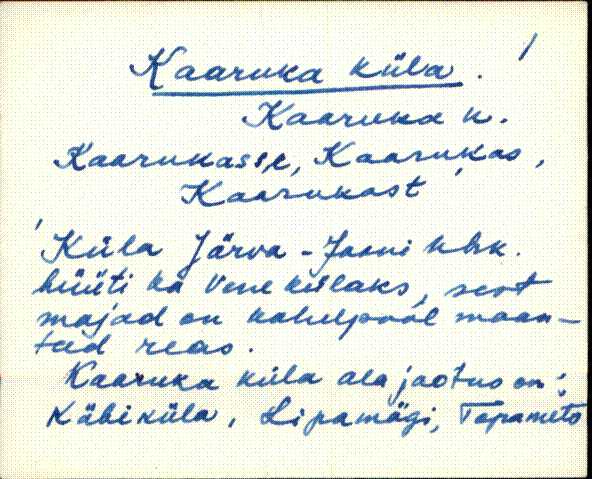 Kaaruka küla. /
Kaaruka k.
Kaarukasse, Kaarukas,
Kaarukast
Küla Järva-Jaani khk.
hüüti ka Vene külaks, sest
majad on kahelpool maan-
teed reas.
Kaaruka küla ala jaotus on:
Käbiküla, Lipamägi, Tapamets